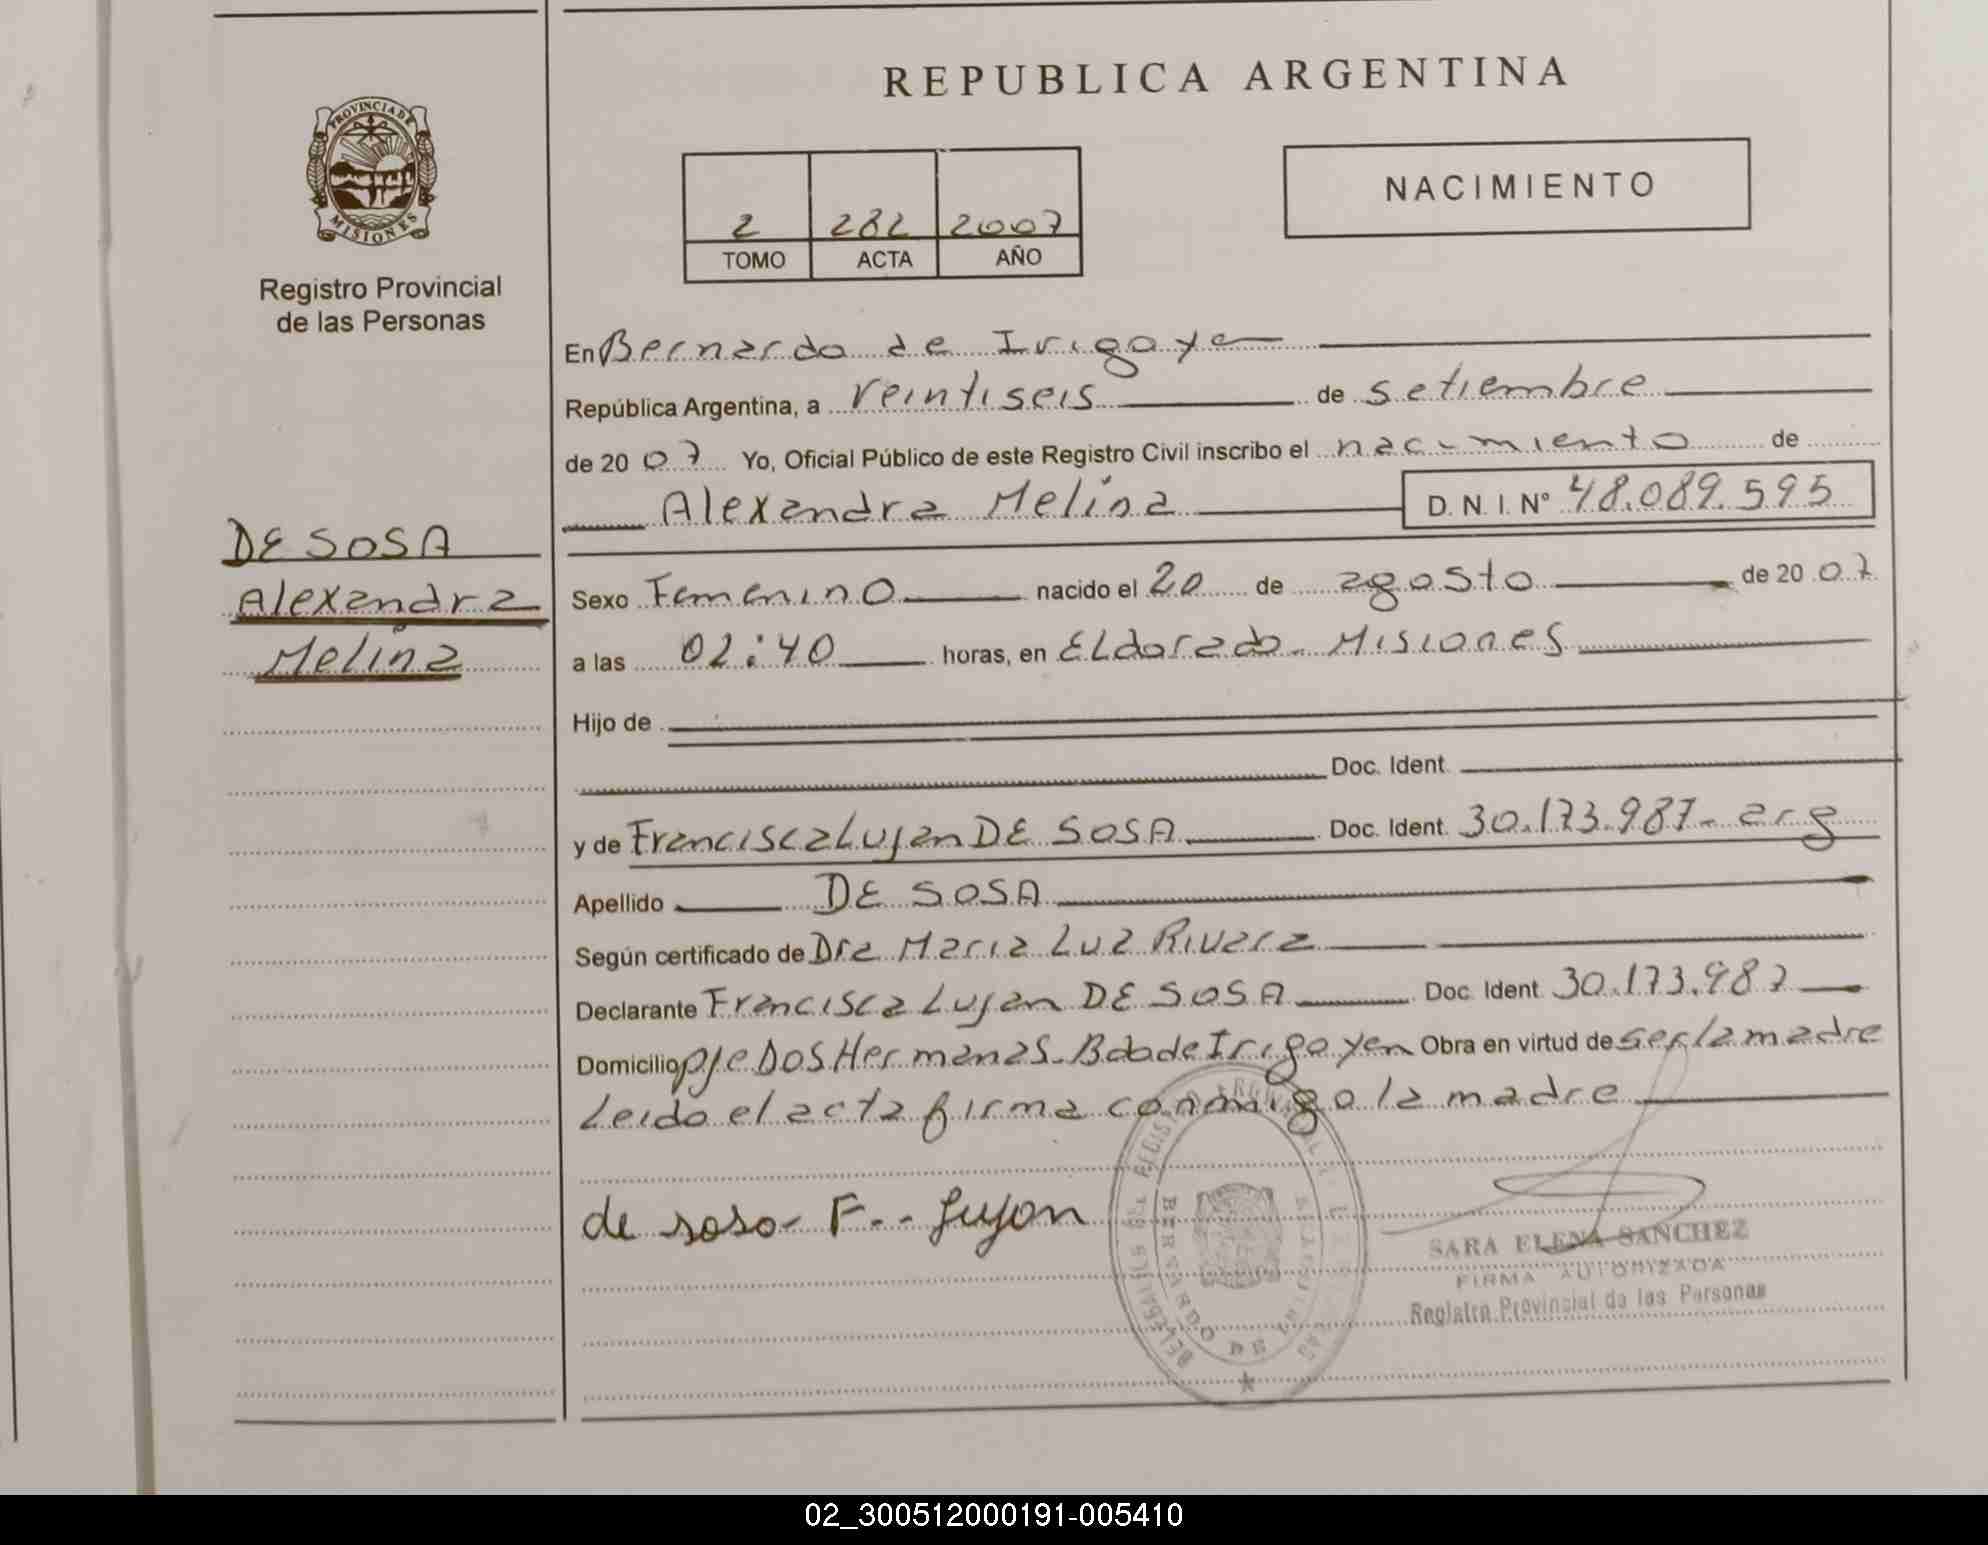 REPUBLICA ARGENTINA
PROVINCIA DE MISIONES
Registro Provincial
de las Personas
NACIMIENTO
2 282 2007
TOMO ACTA AÑO
DE SOSA
Alexandra
Melina
En Bernardo de Irigoye
República Argentina, a veintiseis de setiembre
de 2007 Yo, Oficial Público de este Registro Civil inscribo el nacimiento de
Alexandra Melina D. N. I. Nº 48.089.595
Sexo Femenino nacido el 20 de agosto de 2007
a las 02:40 horas, en Eldorado - Misiones
Hijo de
Doc. Ident.
y de Francisca Lujan DE SOSA Doc. Ident. 30.173.987 - arg
Apellido DE SOSA
Según certificado de Dra Maria Luz Rivera
Declarante Francisca Lujan DE SOSA Doc. Ident. 30.173.987
Domicilio pje Dos Hermanas - Bdo de Irigoyen Obra en virtud de ser la madre
Leido el acta firma conmigo la madre
de sosa F. Lujan
BERNARDO DE
SARA ELENA SANCHEZ
FIRMA AUTORIZADA
Registro Provincial de las Personas
02_300512000191-005410